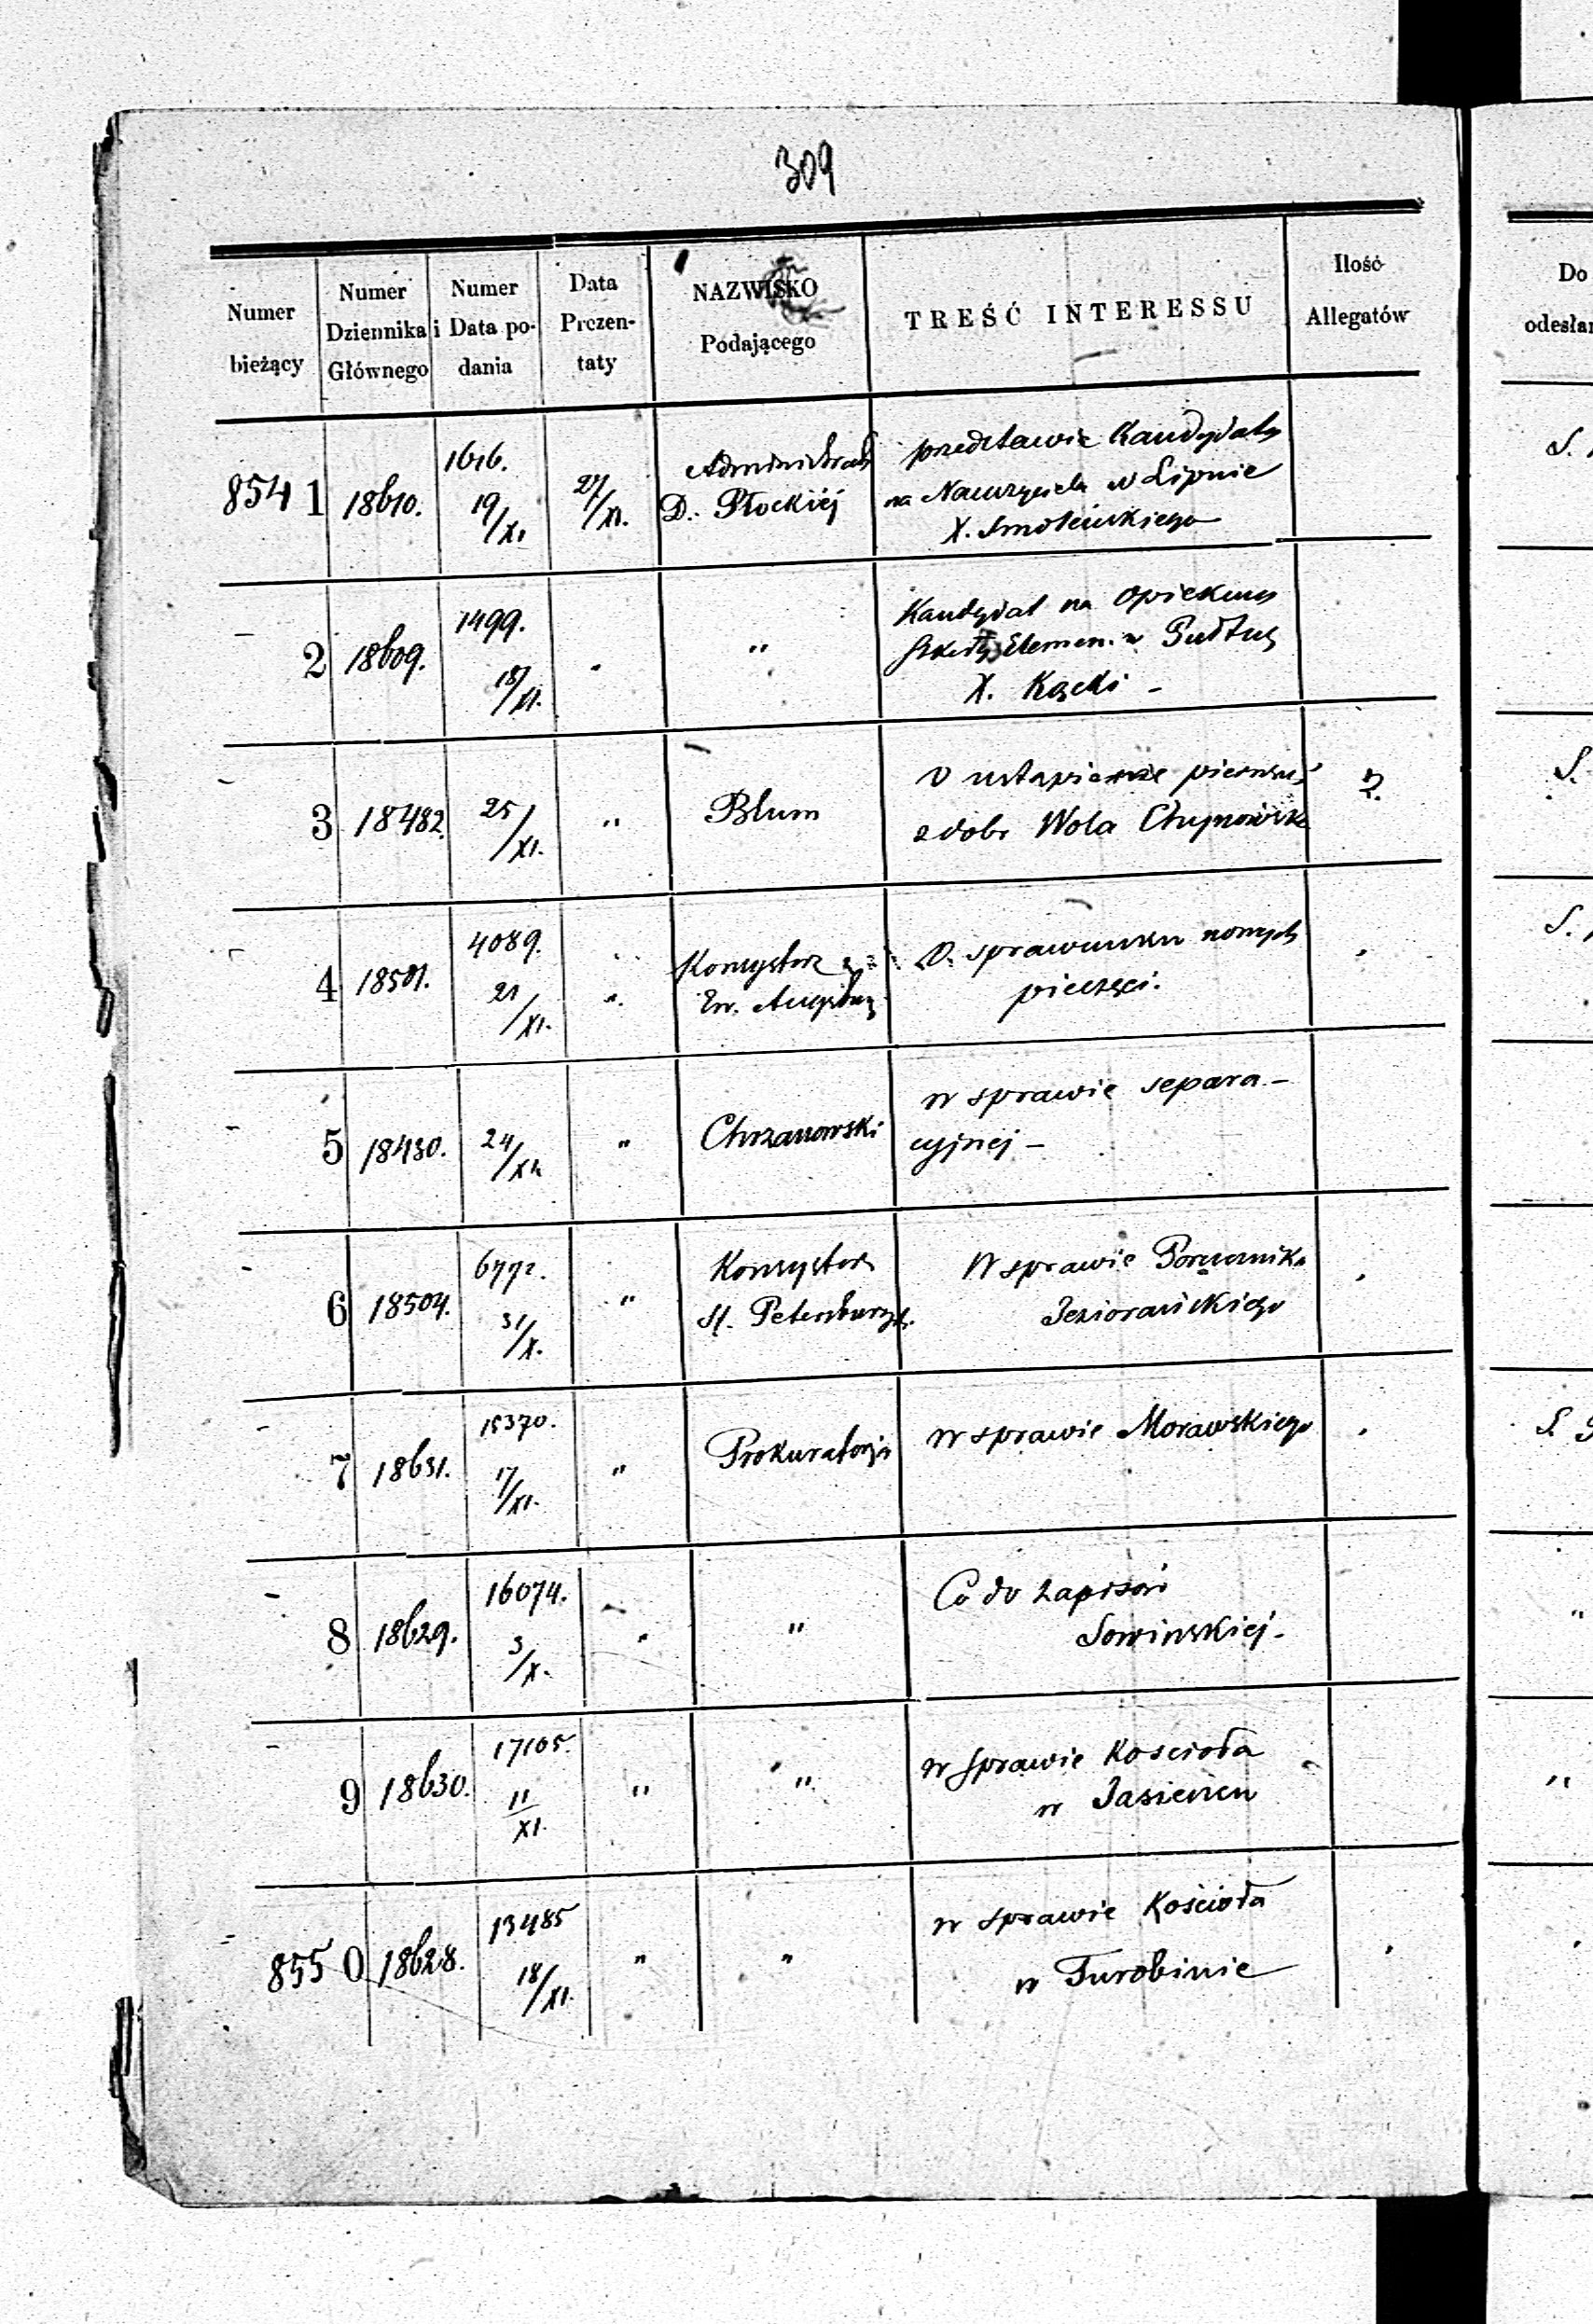 309
Numer bieżący | Numer Dziennika Głównego | Numer i Data podania | Data Prezentaty | NAZWISKO Podającego | TREŚĆ INTERESSU | Ilość Allegatów
8541 | 18610. | 1616. 19/XI | 27/XI. | Administrat D. Płockiéj | przedstawia Kandydata
na Nauczyciela w Lipnie
X. Smoleńskiego
2 | 18609. | 1499. 18/XI. | " | Kandydat na Opiekuna
Szkoły Elemen. w Pułtus
X. Kącki -
3 | 18482. | 25/XI. | " | Blum | O ustąpienie pierwsz
z dobr Wola Chynowska | 2.
4 | 18501. | 4089. 21/XI. | " | Konsystorz
Ew. Augsburg | O sprawunku nowych
pieczęci.
5 | 18430. | 24/XI | " | Chrzanowski | w sprawie separa-
cyjnej -
6 | 18504. | 6772. 31/X. | " | Konsystorz
St. Petersburg. | W sprawie Porucznika
Jeziorańskiego
7 | 18631. | 15370. 17/XI. | " | Prokuratorja | W sprawie Morawskiego
8 | 18629. | 16074. 3/X. | " | " | Co do zapisów
Sowinskiej -
9 | 18630. | 17105. 11/XI. | " | " | w sprawie Kościoła
w Jasieńcu
8550 | 18628. | 13485 18/XI. | " | " | w sprawie Kościoła
w Turobinie
Do